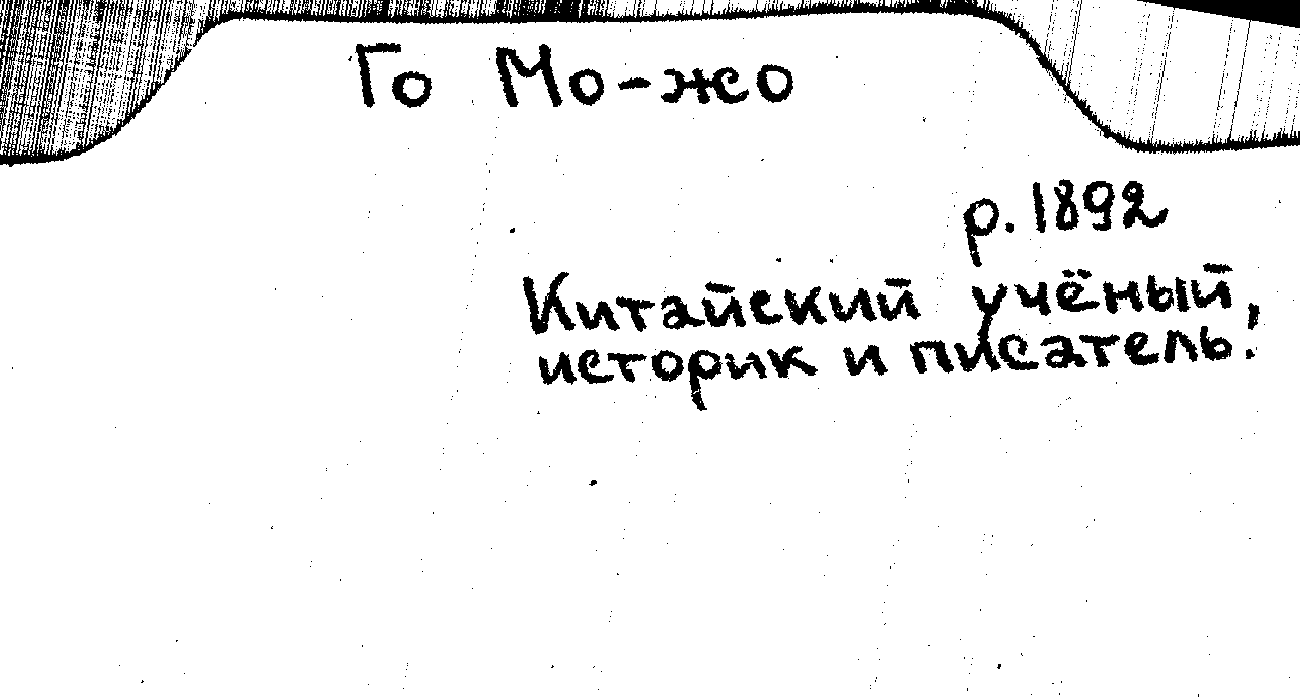 Го Мо-жо
р. 1892
Китайский учёный,
историк и писатель.